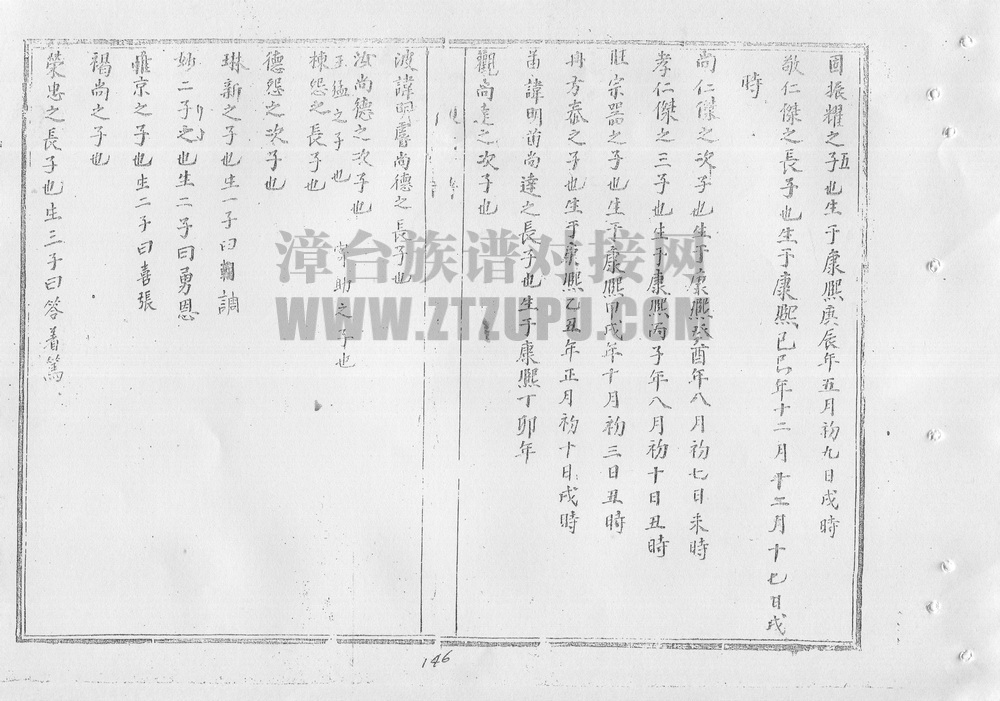 固振耀之五子也生于康熙庚辰年五月初九日戌時
敬仁傑之長子也生于康熙己巳年十二月十二月十七日戌
時
尚仁傑之次子也生于康熙癸酉年八月初七日未時
孝仁傑之三子也生于康熙丙子年八月初十日丑時
旺宗器之子也生于康熙甲戌年十月初三日丑時
丹方泰之子也生于康熙乙丑年正月初十日戌時
甫諱明甫尚達之長子也生于康熙丁卯年
觀尚達之次子也
波諱明尚德之長子也
滨尚德之次子也
玉猛之子也
棠助之子也
棟怨之長子也
德怨之次子也
琳新之子也生一子曰調
妙二子之也生二子曰勇恩
雅京之子也生二子曰喜張
褐尚之子也
榮忠之長子也生三子曰答着篤
漳台族谱对接网
WWW.ZTZUPU.COM
146